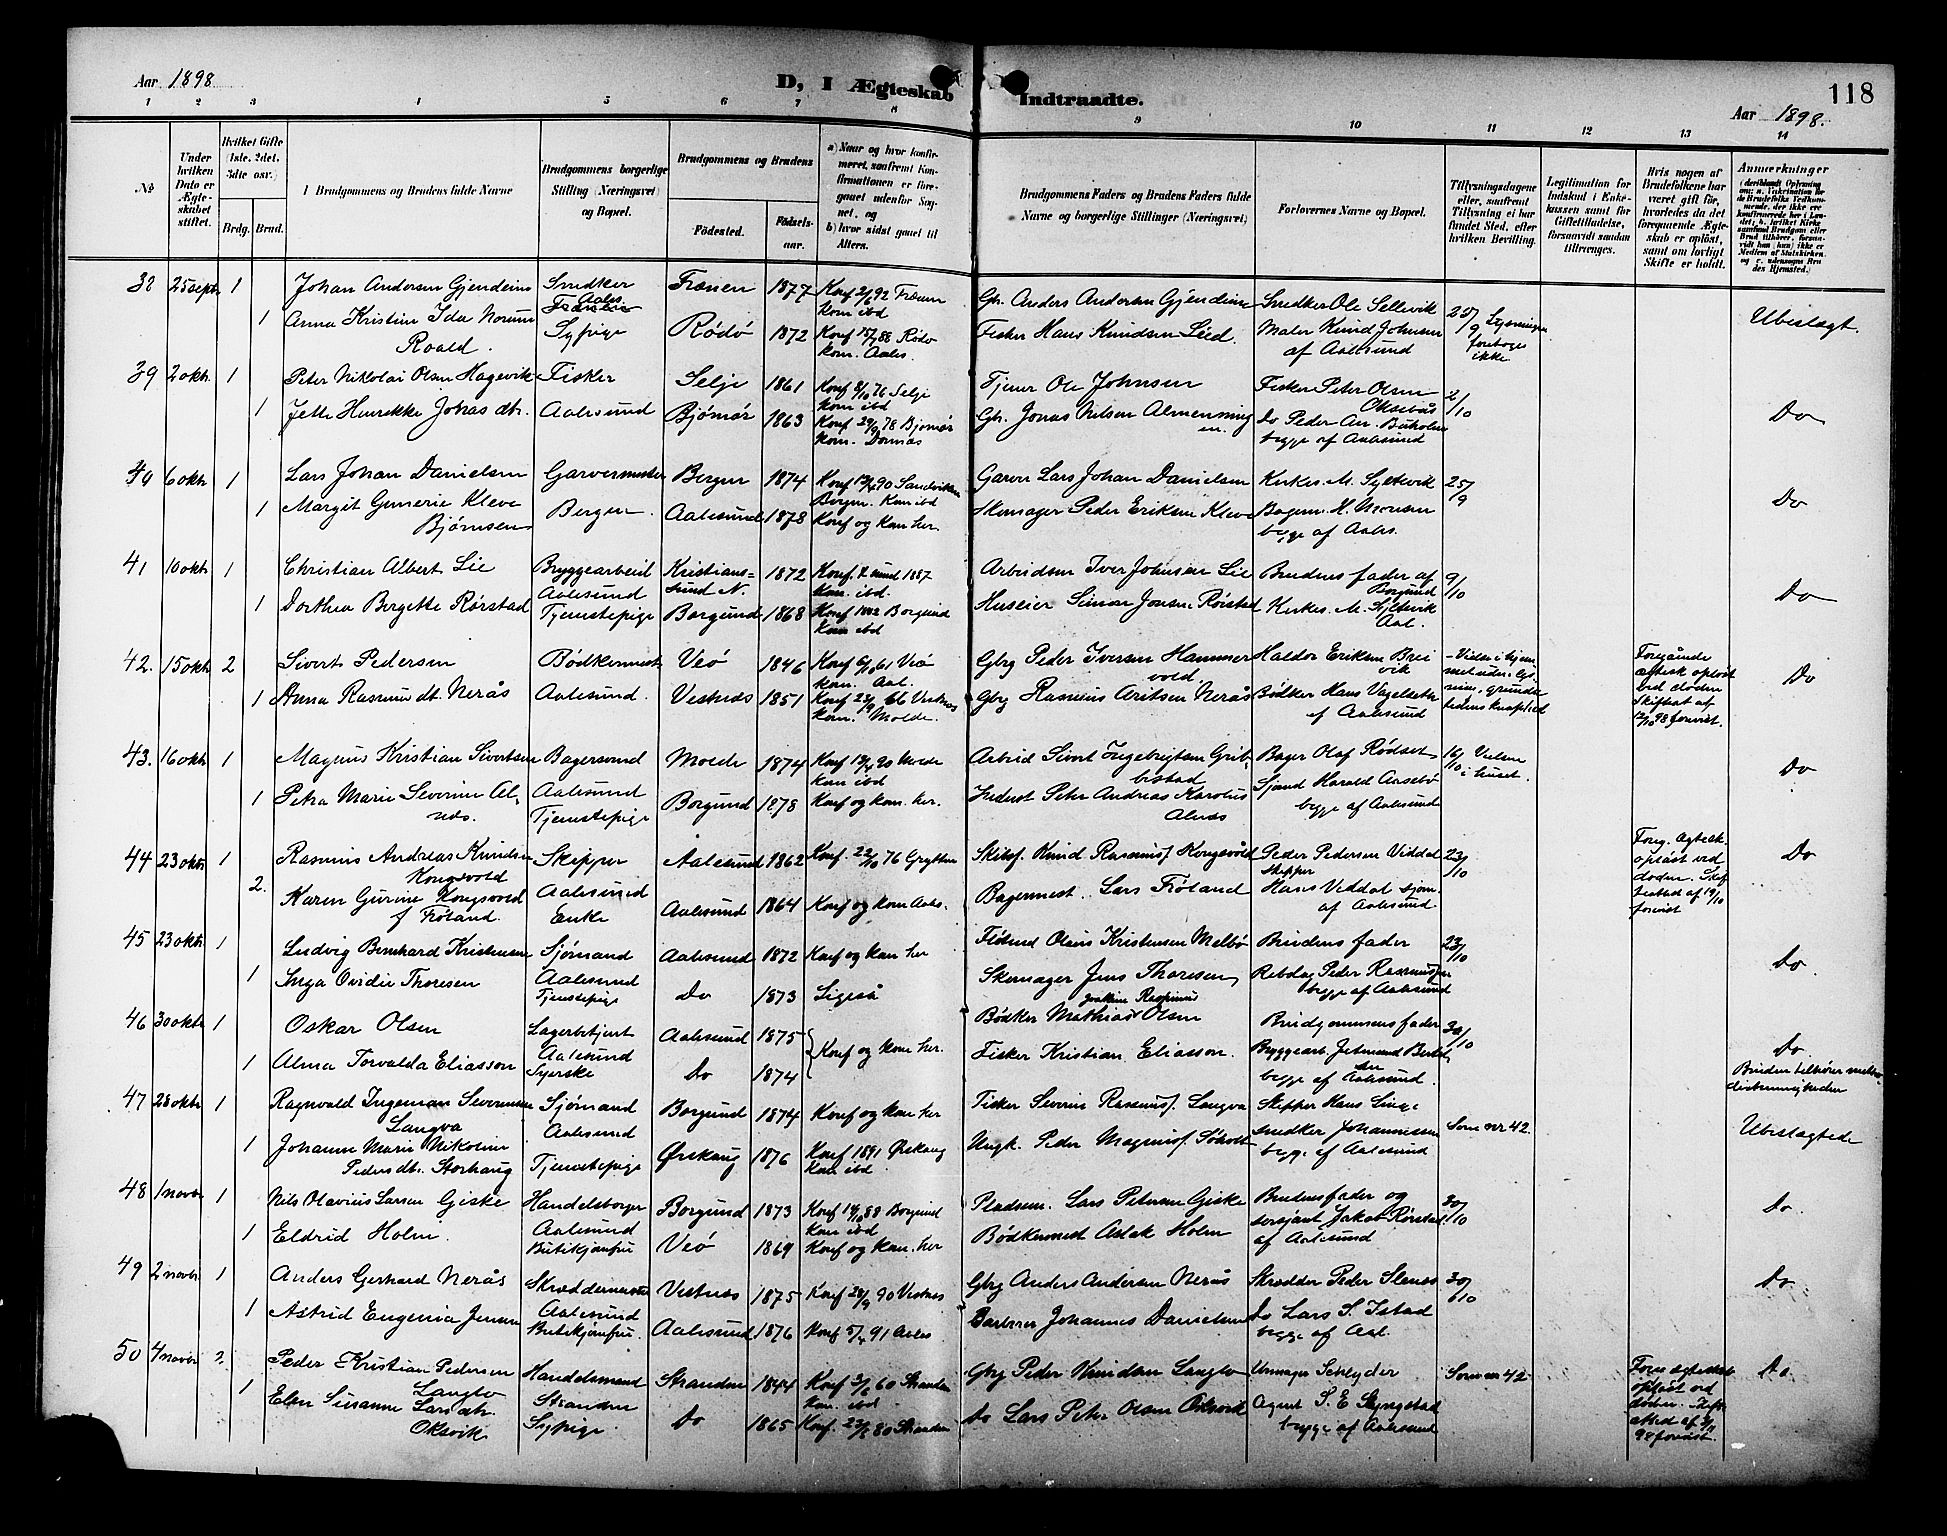 Aar 1898.
D, I Ægteskab Indtraadte.
118
Aar 1898.
1 2 3 4 5 6 7 8 9 10 11 12 13 14
No
Under hvilken Dato er Ægteskabet stiftet.
Hvilket Gifte (1ste, 2det, 3die osv.)
Brdg. Brud.
Brudgommens og Brudens fulde Navne
Brudgommens borgerlige Stilling (Næringsvei) og Bopæl.
Brudgommens og Brudens
Fødested.
Fødselsaar.
a) Naar og hvor konfirmeret, saafremt Konfirmationen er foregaaet udenfor Sognet, og
b) hvor sidst gaaet til Alters.
Brudgommens Faders og Brudens Faders fulde Navne og borgerlige Stillinger (Næringsvei)
Forlovernes Navne og Bopæl.
Tillysningsdagene eller, saafremt Tillysning ei har fundet Sted, efter hvilken Bevilling.
Legitimation for Indskud i Enkekassen samt for Giftetilladelse, forsaavidt saadan tiltrænges.
Hvis nogen af Brudefolkene har været gift før, hvorledes da det foregaaende Ægteskab er opløst, samt om lovligt Skifte er holdt.
Anmærkninger
38 25 sept. 1 Johan Andersen Gjendeim Snedker Aales. Frænen 1877 Konf 2/6 92 Frænen kom ibd Gbr. Anders Andersen Gjendeim Snedker Ole Sellevik 25/9 Lysninger foretoges ikke Ubeslægt.
1 Anna Kristine Ida Norum Roald. Sypige Rødø 1872 Konf 15/7 88 Rødø kom. Aales. Fisker Hans Knudsen Leed. Maler Knud Johnsen af Aalesund
39 2 okt. 1 Peter Nikolai Olsen Hagevik Fisker Selje 1861 Konf 8/10 76 Selje kom ibd Tjener Ole Johnsen Fisker Peter Olsen Oksebås 2/10 Do
1 Jette Henrikke Jonas dt. Aalesund Bjørnør 1863 Konf 29/9 78 Bjørnør kom. Gbr. Jonas Nilsen Almenning Do Peder An. Buholm begge af Aalesund
40 6 okt 1 Lars Johan Danielsen Garvermester Bergen 1874 Konf 13/4 90 Sandviken Bergen. Kom ibd Garver Lars Johan Danielsen Kirkes. M. Syltevik 25/9 Do
1 Margit Gunerie Kleve Bjørnsen Bergen. Aalesund 1878 Konf og kom her. Skomager Peder Eriksen Kleve Bagerm. H. Monsen begge af Aales.
41. 10 okt 1 Christian Albert Lie Bryggearbeid Aalesund Kristianssund N. 1872 Konf. K.sund 1887 kom. ibd. Arbeidsm Iver Johnsen Lie Brudens fader af Borgund 9/10 Do
1 Dorthea Bergette Rørstad Tjenestepige Borgund 1868 Konf 1882 Borgund kom ibd Huseier Simon Jonsen Rørstad Kirkes. M. Syltevik Aal.
42. 15 okt 2 Sivert Pedersen Bødkermest Veø 1846 Konf 6/10 61 Veø kom. Aal. Gbrg Peder Iversen Hammervold Haldor Eriksen Breivik Do
1 Anna Rasmus dt. Nerås Aalesund. Vestnes 1851 Konf 23/9 66 Vestnes kom. Molde. Gbrg Rasmus Aritsen Nerås Bødker Hans Vageldstn af Aalesund
Foregående ægtesk opløst ved døden Skifteat af 12/10 98 forevist.
43. 16 okt 1 Magnus Kristian Sivertsen Bagersvend Molde 1874 Konf 13/4 90 Molde kom ibd Arbeid Sivert Ingebrigtsen Gribbestad Bager Olaf Rødset 16/10 Vielsen i huset. Do
1 Petra Marie Severine Alnæs. Aalesund Tjenestepige Borgund 1878 Konf og kom. her. Inderst Peter Andreas Karolus Alnæs Sjømd Harald Aasebø begge af Aalesund
44 23 okt 1 Rasmus Andreas Knudsen Kongsvold Skipper Aalesund 1862 Konf. 22/10 76 Grytten Skibsf. Knud Rasmus. Kongsvold Peder Pedersen Viddal skipper 23/10 Do
2. Karen Gurine Kongsvold f Frøland. Aalesund Enke Aalesund 1864 Konf og kom Aales. Bagermest. Lars Frøland Hans Viddal sjøm. af Aalesund.
Foreg. Ægtesk. opløst ved døden. Skifteatted af 19/10 forevist
45 23 okt. 1 Ludvig Bernhard Kristensen Sjømand Aalesund 1872 Konf og kom her Flødmd Olaus Kristensen Melbø Brudens fader 23/10 Do.
1 Inga Ovidie Thoresen Aalesund Tjenestepige Do 1873 Ligeså Skomager Jens Thoresen Rebslag Peder Rasmussen begge af Aalesund
46 30 okt 1 Oskar Olsen Lagerbetjent Aalesund 1875 Konf og kom her. Bødker Mathias Joakim Rasmus Olsen Brudgommens fader 30/10 Do.
1 Alma Torvalda Eliasson Aalesund Syerske Do 1874 Fisker Kristian Eliasson. Bryggearb. Jetmund begge af Aalesund. Bruden tilhører methodistmenigheden
47 28 okt 1 Ragnvald Ingeman Severinsen Langva Sjømand Aalesund Borgund 1874 Konf og kom her Fisker Severin Rasmus. Langva Skipper Hans Linge Som nr 42. Ubeslægtede
1 Johanne Marie Nikoline Peders dt. Storhaug Tjenestepige Ørskoug 1876 Konf 1891 Ørskoug Kom ibd Ungk. Peder Magnus. Søholt snedker Johannessen begge af Aalesund
48 1 novbr 1 Nils Olavius Larsen Giske Handelsborger Borgund 1873 Konf 14/10 88 Borgund kom ibd Pladsm. Lars Petersen Giske Brudens fader og 30/10 Do.
1 Eldrid Holm. Aalesund Butikjomfru Veø 1869 Konf og kom. her Bødkermest Aslak Holm sersjant Jakob Rørstad. af Aalesund
49 2 novbr 1 Anders Gerhard Nerås Skræddermester Vestnes 1875 Konf 28/9 90 Vestnes Gbrg Anders Andersen Nerås Skrædder Peder Stenes 30/10 Do
1 Astrid Eugenia Jensen Aalesund Butikjomfru. Aalesund 1876 Konf 5/4 91 Aales Barberer Johannes Danielsen Do Lars S. Istad begge af Aal.
50 4 novbr 2. Peder Kristian Pedersen Langlo Handelsmand Stranden Stranden 1844 Konf 3/6 60 Stranden kom. ibd. Gbrg Peder Knudsen Langlo Urmager Schlyder Som nr 42 Do
1 Elen Susanne Lars dt. Oksvik Sypige Do 1865 Konf. 23/5 80 Stranden Do Lars Peter Olsen Oksvik Agent S. E Slyngstad begge af Aalesund
Foreg ægteskab opløst ved døden. Skifteatted af 3/11 98 forevist.